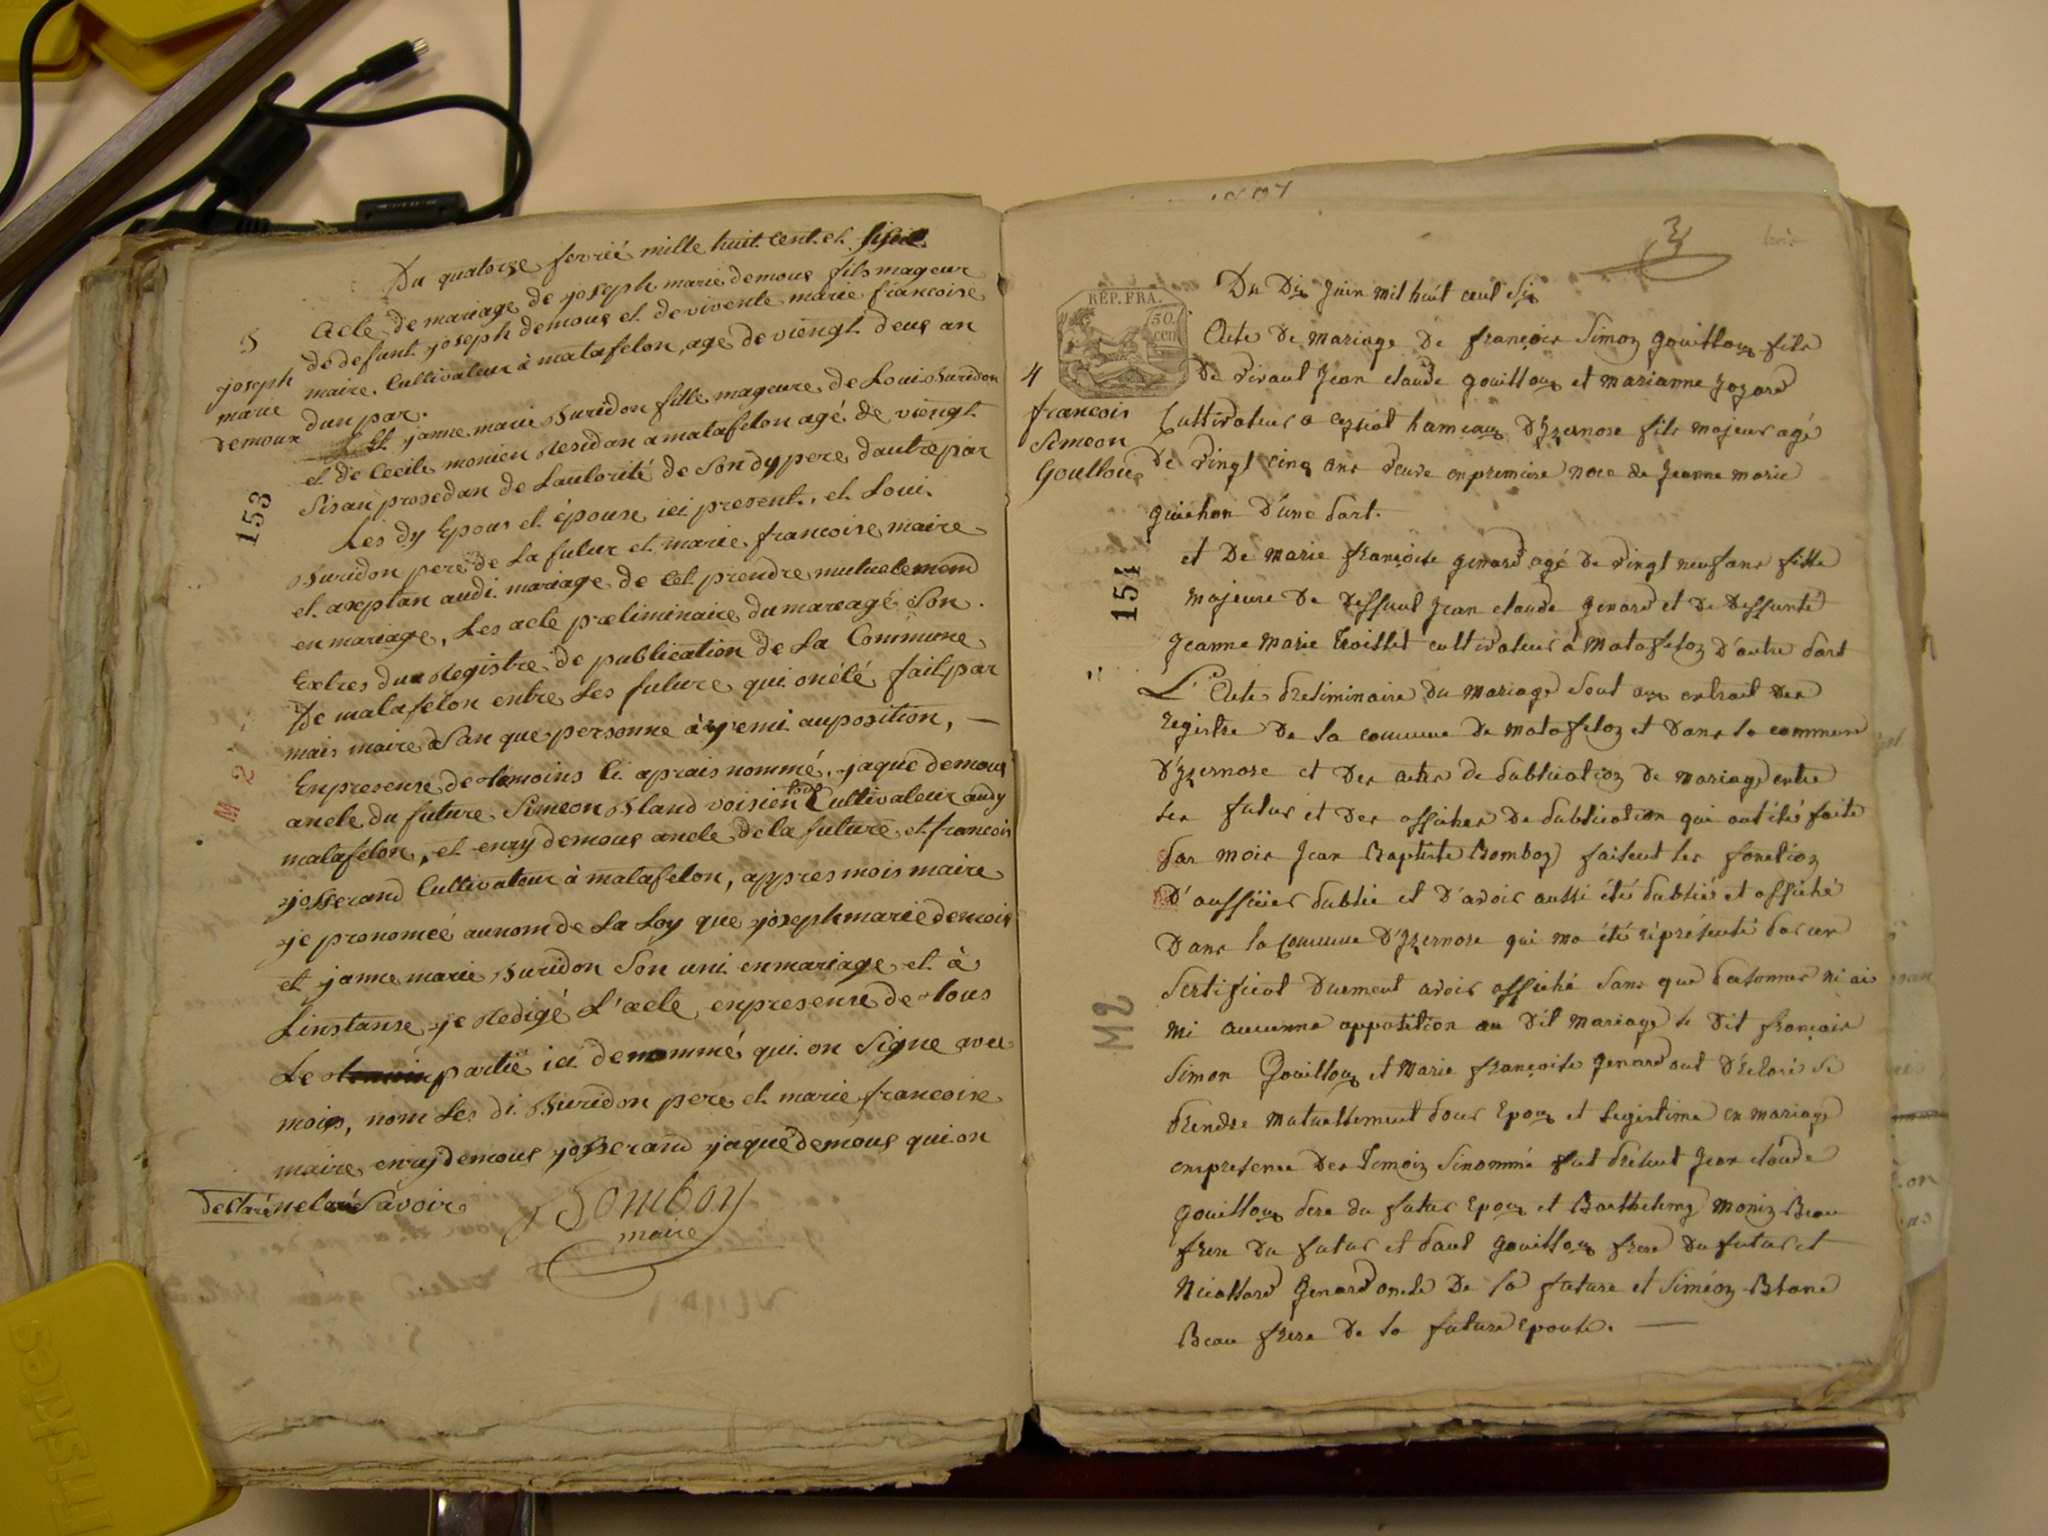 Du quatorze ferrié mille huit cent et sis
3
Acte de mariage de joseph marie demoux fils mageur
de defunt joseph demoux et de vivente marie francoise
maire Cultivateur à matafelon, age de viengt deux an
joseph
marie
demoux
dun par.
Et janne marie Buridon fille mageure de Loui Buridon
et de Cecile monien residan a matafelon agé de viengt
sis an prosedan de Lautorité de Son dy pere d'autre par
153
Les dy Epous et épouse ici present, et Loui
Buridon pere de La futur et marie francoise maire
et axeptan audi mariage de Cet prendre mutuelemend
en mariage, Les acte preliminaire du mareagé Son
Extres du Registre de publication de La Commune
De matafelon entre Les future qui on été fait par
mais maire San que personne à y emi auposition,
En presense de temoins Ci aprais nommé, jaque demoux
ancle du future Simeon Bland voisien tous Cultivateur audy
matafelon, et enry demoux ancle de la future et francois
josserand Cultivateur à matafelon, appres mois maire
je pronomée au nom de La Loy que joseph marie demoux
et janne marie Buridon Son uni en mariage et à
Linstanse je Redigé L'acte en presense de tous
Le partie ici denommé qui on Signe avec
mois, nom Les di Buridon pere et marie francoise
maire enry demoux josserand jaque demoux qui on
declaré ne Savoir
Bomboy
maire
M 2
3
trois
RÉP. FRA.
50
cen
Du Dix Juin mil huit cent Six
Acte De Mariage De françois Simon Gouilloux fils
De vivant Jean claude gouilloux et marianne Jozard
4
francois
Simeon
Goulloux
Cultivateur a ceyssiat hameaux D'Izernore fils majeur agé
De vingt cinq ans veuve en premiere noce de Jeanne marie
guichon D'une part.
154
et De marie françoise genard agé De vingt neuf ans fille
Majeure De Deffunt Jean claude genard et De Deffunté
Jeanne Marie Troillet cultivateur à Matafelon D'autre part
L'Acte preliminaire Du Mariage Sont aux extrait Des
registre De la commune De Matafelon et Dans la commune
D'Izernore et Des actes de publication De mariage entre
les futur et Des affiches De publication qui ont étés faite
par mois Jean Baptiste Bomboy faisent les fonction
D'aufficier publie et D'avoir aussi été publié et affiché
Dans la commune D'Izernore qui ma été réprésenté par un
Sertificat Duement avoir affiché Sans que personnes ni ais
mi aucunne apposition au Dit Mariage le Dit françois
M2
Simon Gouilloux et Marie françoise genard ont Déclaré Se
prendre Mutuellement pour Epoux et legistime en mariage
en presence Des Temoin Sinommé fut présent Jean claude
gouilloux pere du futur Epoux et Barthelemy Moniz Beau
frere Du futur et paul gouilloux frere Du futur et
Nicollard Genard oncle De la future et Siméon Blanc
Beau frere De la future Epouse.